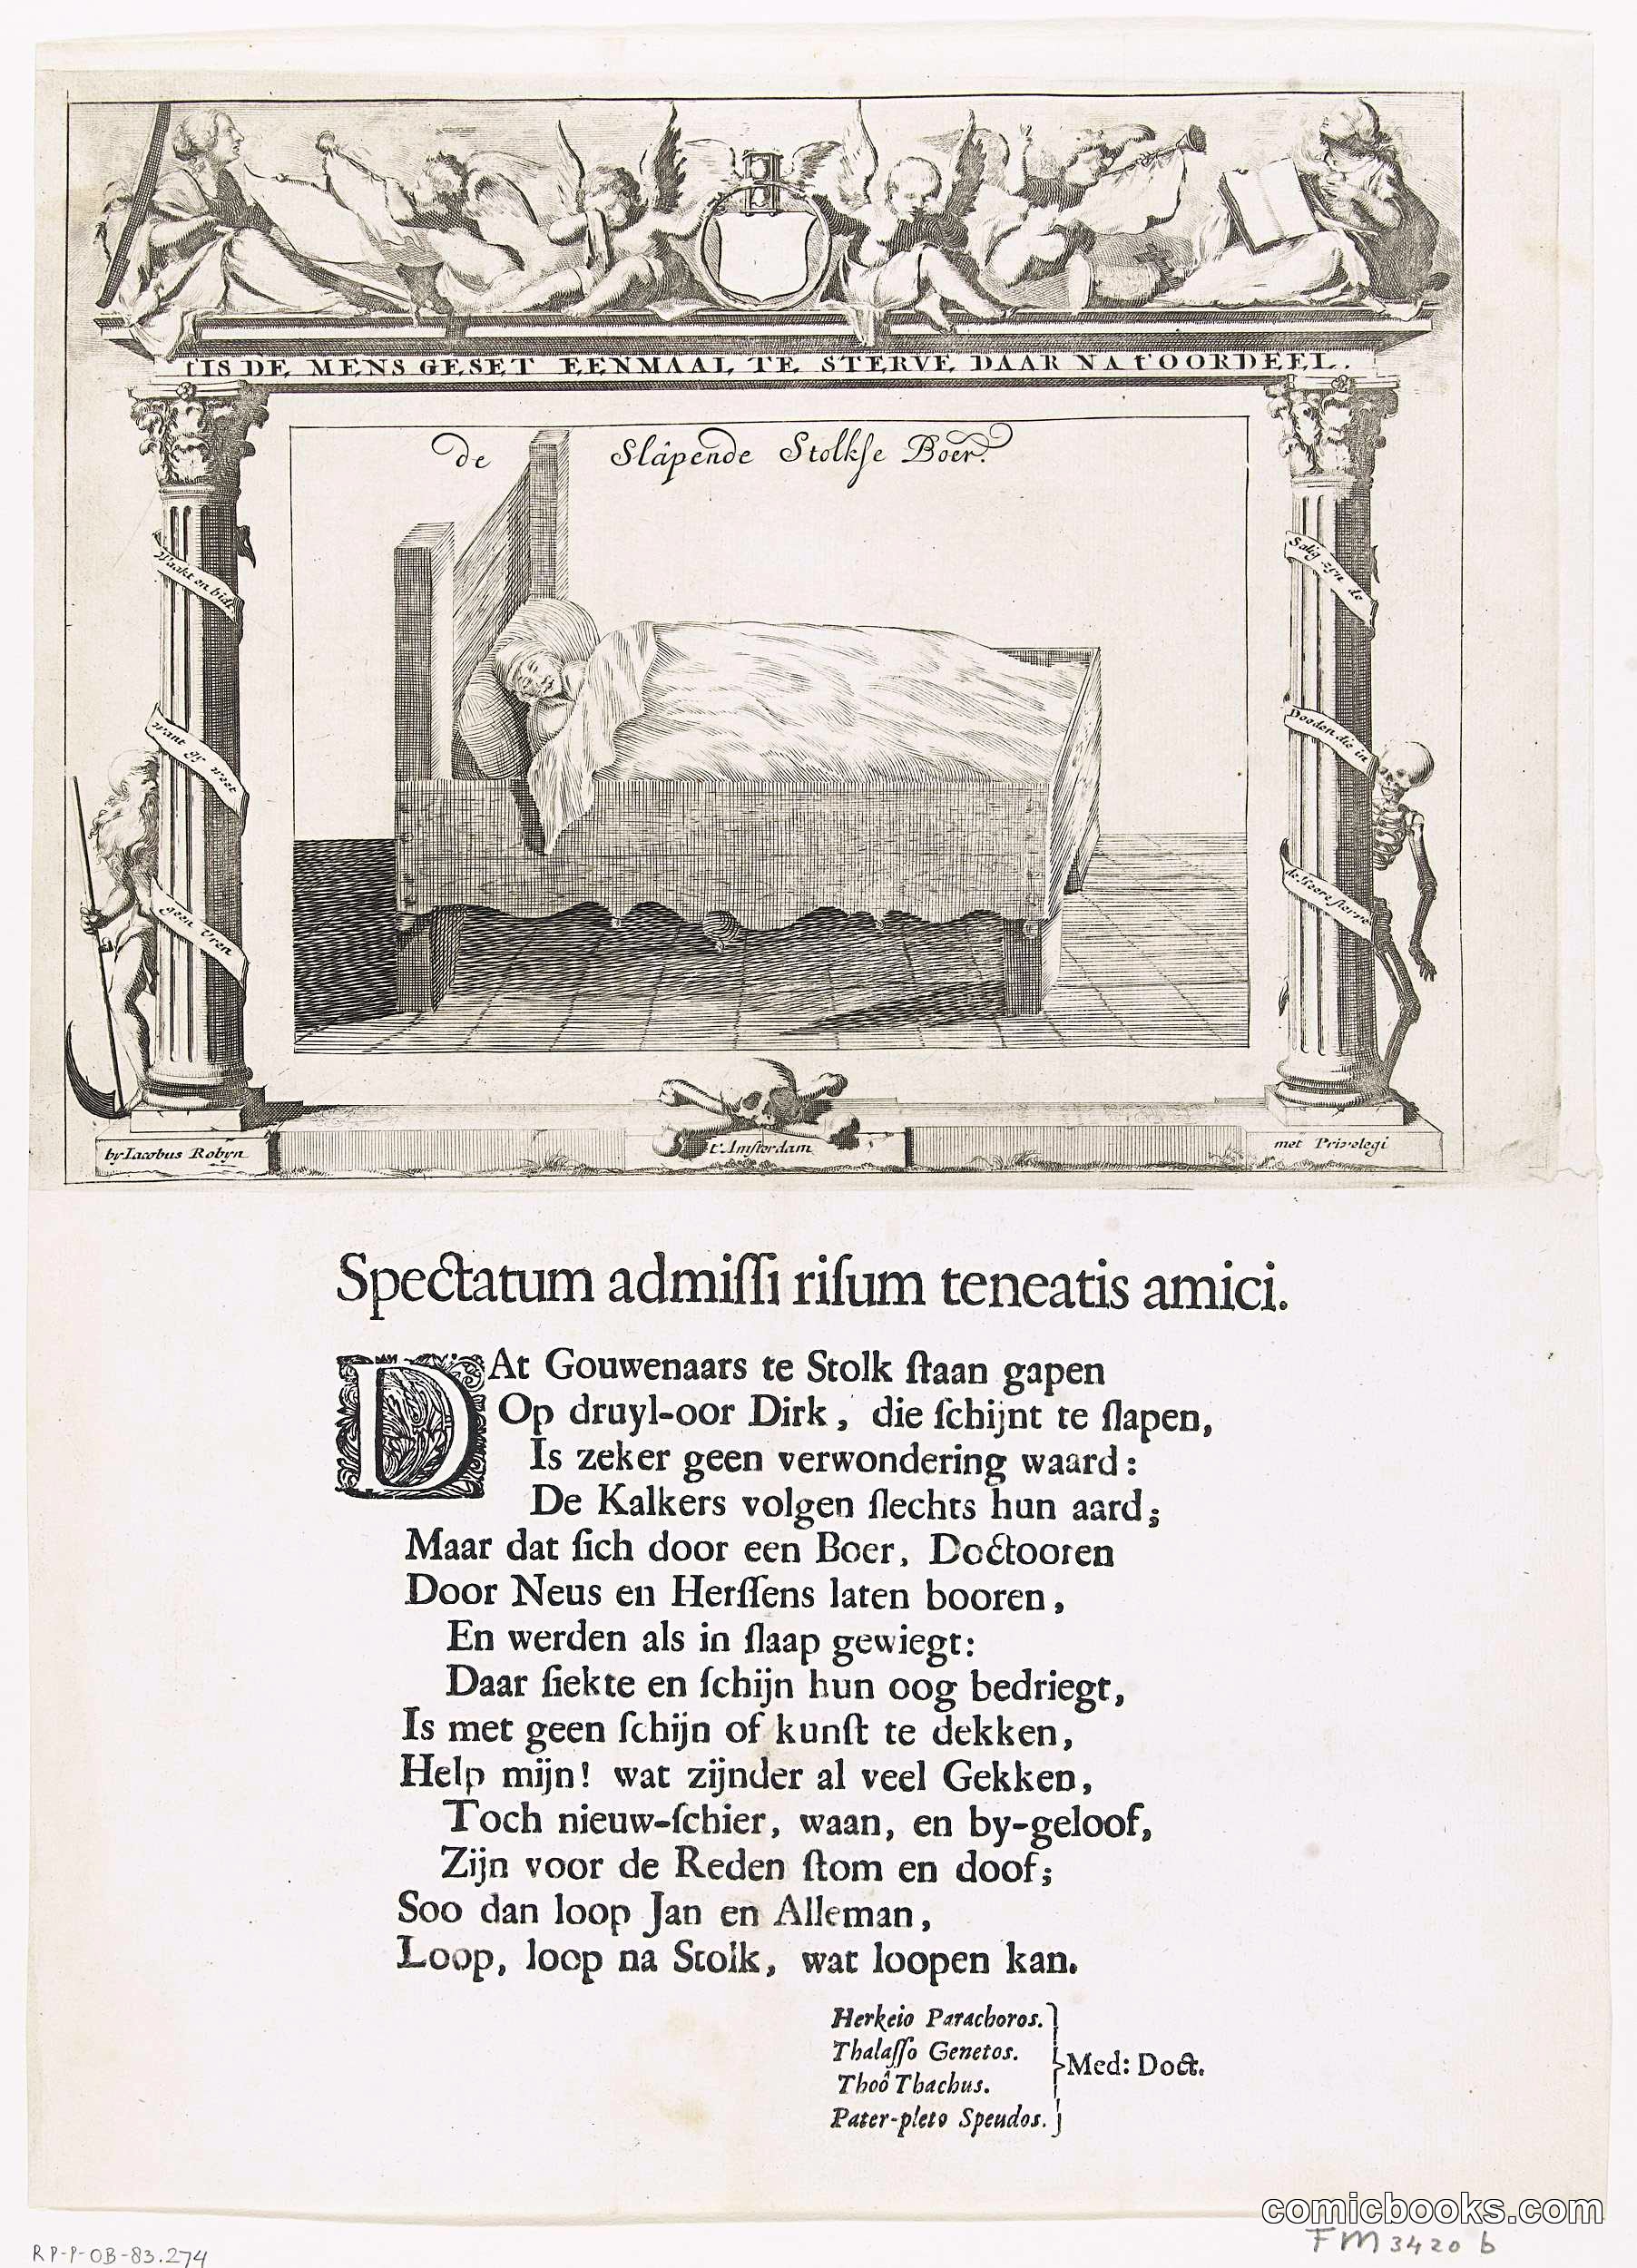 t'IS DE MENS GESET EENMAAL TE STERVE DAAR NA t'OORDEEL.
de Slâpende Stolkse Boer.
Waakt en bidt
want gy weet
geen Uren
Salig zyn de
Dooden die in
de Heere sterve
by Iacobus Robÿn
t'Amsterdam
met Privelegi
Spectatum admiſſi riſum teneatis amici.
DAt Gouwenaars te Stolk ſtaan gapen
Op druyl-oor Dirk, die ſchijnt te ſlapen,
Is zeker geen verwondering waard:
De Kalkers volgen ſlechts hun aard;
Maar dat ſich door een Boer, Doctooren
Door Neus en Herſſens laten booren,
En werden als in ſlaap gewiegt:
Daar ſiekte en ſchijn hun oog bedriegt,
Is met geen ſchijn of kunſt te dekken,
Help mijn! wat zijnder al veel Gekken,
Toch nieuw-ſchier, waan, en by-geloof,
Zijn voor de Reden ſtom en doof;
Soo dan loop Jan en Alleman,
Loop, loop na Stolk, wat loopen kan.
Herkeio Parachoros.
Thalaſſo Genetos.
Thoô Thachus.
Pater-pleto Speudos.
Med: Doct.
comicbooks.com
RP-P-OB-83.274
FM 3420 b